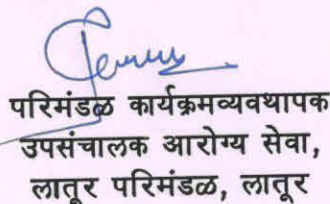 परिमंडळ कार्यक्रमव्यवथापक
उपसंचालक आरोग्य सेवा,
लातूर परिमंडळ, लातूर